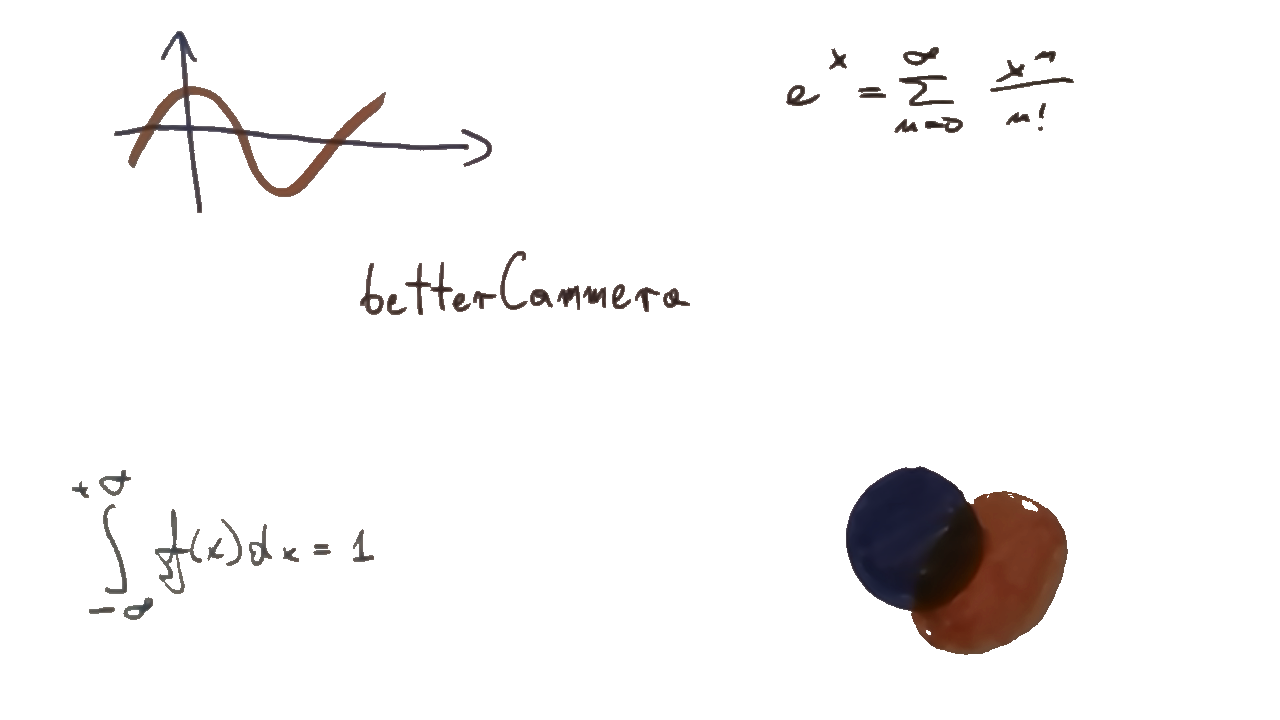 e^x = ∑_{n=0}^{∞} x^n / n!
betterCammera
∫_{-∞}^{+∞} f(x) dx = 1